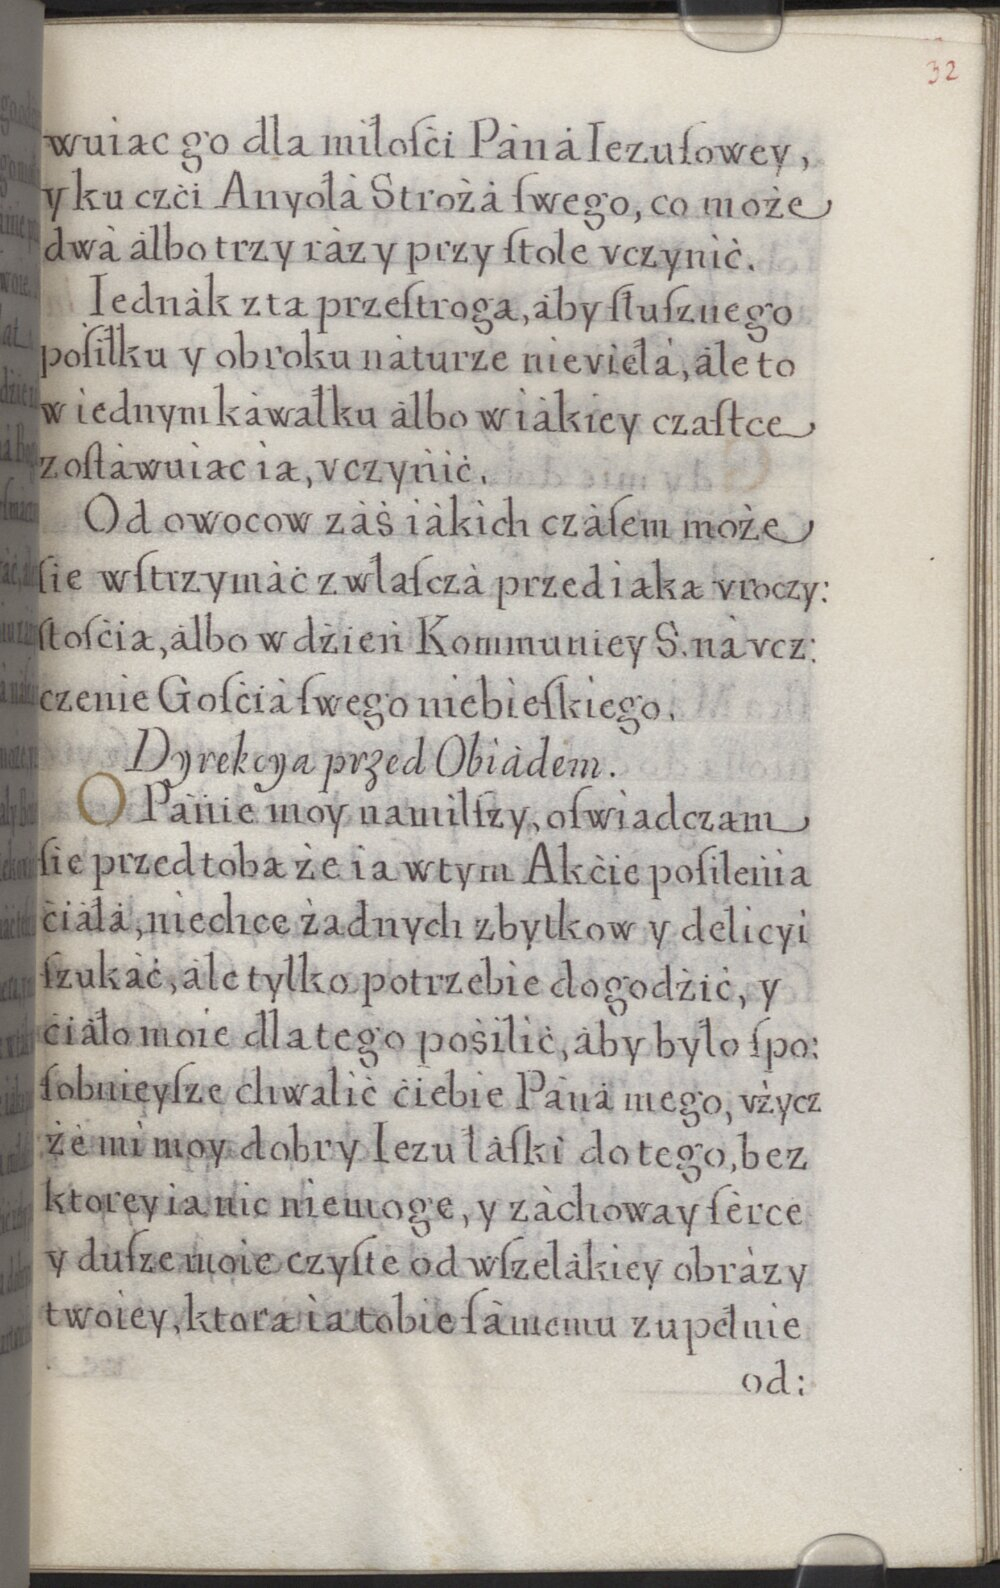 32
wuiac go dla miłoſċi Pȧnȧ Iezuſowey,
y ku czċi Anyołȧ Strożȧ ſwego, co może
dwȧ ȧlbo trzy rȧzy przy ſtole vczynić.
Iednȧk z ta przeſtroga, ȧby ſłuſznego
poſiłku y obroku nȧturze nie vielȧ, ȧle to
w iednym kȧwałku ȧlbo w iȧkiey czaſtce
zoſtȧwuiac ia, vczynić.
Od owocow zȧś iȧkich czȧſem może
ſie wſtrzymȧć zwłaſczȧ przed iaka vroczy:
ſtoſċia, ȧlbo w dżień Kommuniey S. nȧ vcz:
czenie Goſċiȧ ſwego niebieſkiego.
Dyrekcya przed Obiȧdem.
O Pȧnie moy namilſzy, oſwiadczam
ſie przed toba że ia w tym Akċie poſilenia
ċiȧłȧ, niechce żadnych zbytkow y delicyi
ſzukȧć, ȧle tylko potrzebie dogodżić, y
ċiȧło moie dla tego pośilić, ȧby było ſpo:
ſobnieyſze chwalić ċiebie Pȧnȧ mego, vżycz
że mi moy dobry Iezu łȧſki do tego, bez
ktorey ia nic niemoge, y zȧchoway ſerce
y duſze moie czyſte od wſzelȧkiey obrȧzy
twoiey, ktora ia tobie ſȧmemu zupełnie
od: